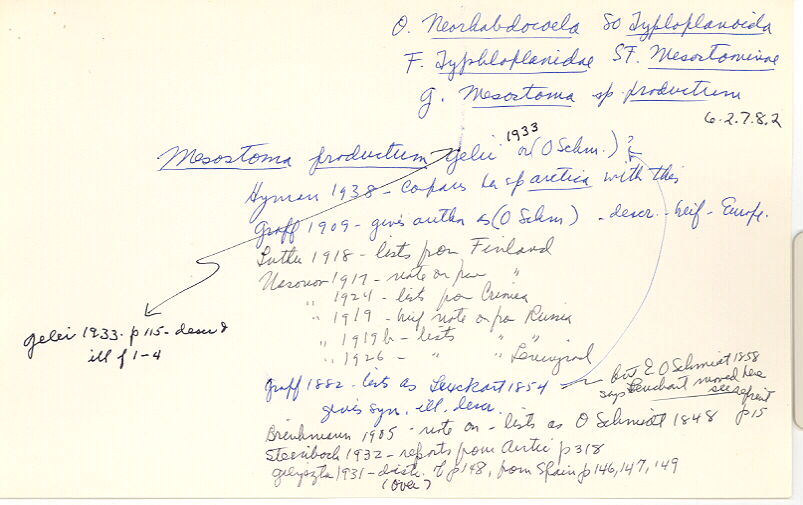 O. Neorhabdocoela SO Typloplanoida
F. Typhloplanidae SF. Mesostominae
G. Mesostoma sp. productum
6.2.7.8.2
Mesostoma productum Gelei 1933 or (O Schm.)?
Hyman 1938 - compares her sp arctica with this
Graff 1909 - gives author as (O Schm) - descr. - brief - Europe.
Luther 1918 - lists from Finland
Nasonov 1917 - note on from "
" 1924 - lists from Crimea
" 1919 - brief note on from Russia
" 1919b - lists " "
" 1926 - " " Leningrad
Gelei 1933 - p 115 - descr &
ill f 1-4
Graff 1882 - lists as Leuckart 1854
gives syn. ill. descr.
but E O Schmidt 1858
says Leuckart named her
see reprint
p 15
1905 - note on - lists as O Schmidt 1848
1932 - reports from Arctic p 318
1931 - distr. of p 148, from Spain p 146, 147, 149
(over)